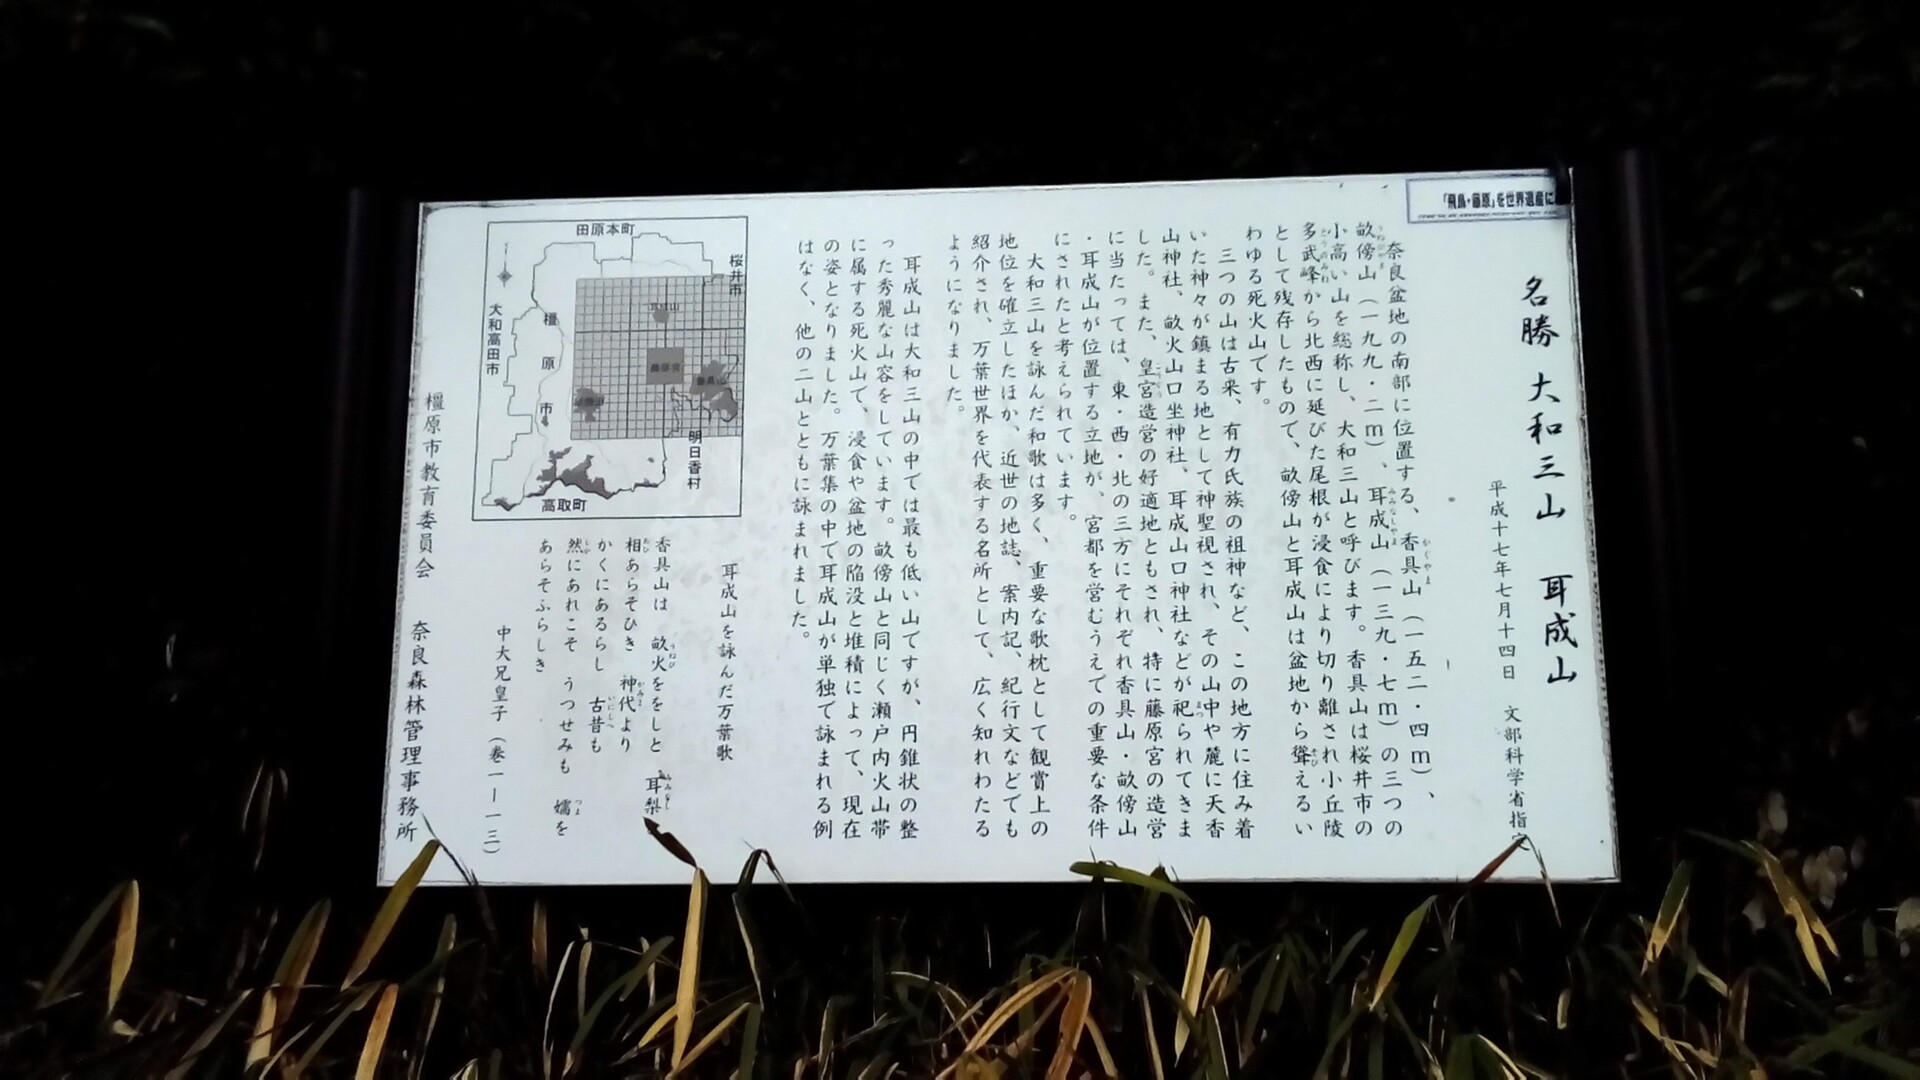 「飛鳥・藤原」を世界遺産に
名勝 大和三山 耳成山
平成十七年七月十四日 文部科学省指定
奈良盆地の南部に位置する、香具山（一五二・四ｍ）、
畝傍山（一九九・二ｍ）、耳成山（一三九・七ｍ）の三つの
小高い山を総称し、大和三山と呼びます。香具山は桜井市の
多武峰から北西に延びた尾根が浸食により切り離され小丘陵
として残存したもので、畝傍山と耳成山は盆地から聳えるい
わゆる死火山です。
三つの山は古来、有力氏族の祖神など、この地方に住み着
いた神々が鎮まる地として神聖視され、その山中や麓に天香
山神社、畝火山口坐神社、耳成山口神社などが祀られてきま
した。また、皇宮造営の好適地ともされ、特に藤原宮の造営
に当たっては、東・西・北の三方にそれぞれ香具山・畝傍山
・耳成山が位置する立地が、宮都を営むうえでの重要な条件
にされたと考えられています。
大和三山を詠んだ和歌は多く、重要な歌枕として観賞上の
地位を確立したほか、近世の地誌、案内記、紀行文などでも
紹介され、万葉世界を代表する名所として、広く知れわたる
ようになりました。
耳成山は大和三山の中では最も低い山ですが、円錐状の整
った秀麗な山容をしています。畝傍山と同じく瀬戸内火山帯
に属する死火山で、浸食や盆地の陥没と堆積によって、現在
の姿となりました。万葉集の中で耳成山が単独で詠まれる例
はなく、他の二山とともに詠まれました。
田原本町
桜井市
大和高田市
橿原市
耳成山
藤原宮
香具山
畝傍山
明日香村
高取町
耳成山を詠んだ万葉歌
香具山は 畝火ををしと 耳梨と
相あらそひき 神代より
かくにあるらし 古昔も
然にあれこそ うつせみも 嬬を
あらそふらしき
中大兄皇子（巻一ー一三）
橿原市教育委員会 奈良森林管理事務所